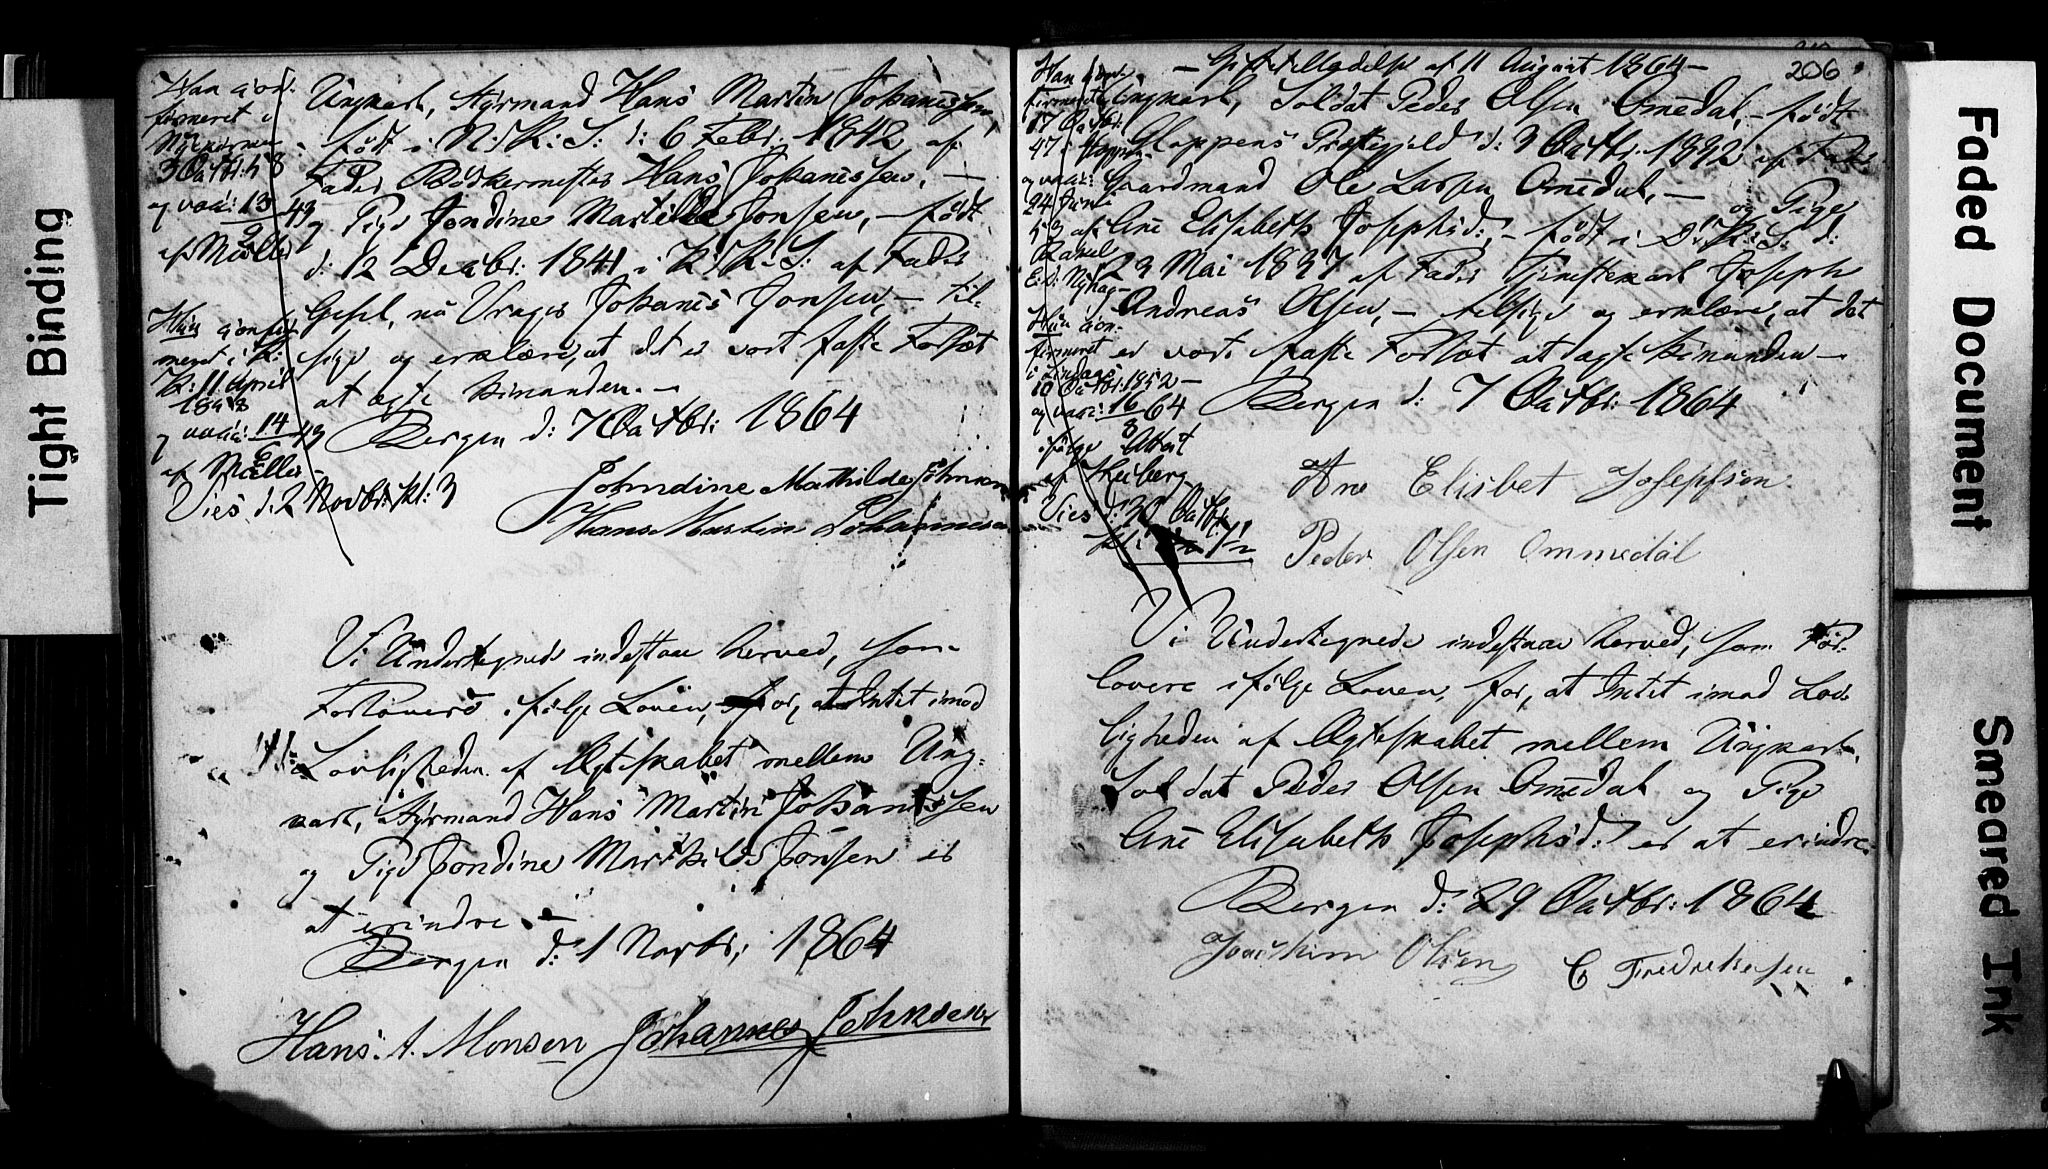 Tight Binding
Han conf:
firmeret i
Nykirken
3 Octbr: 58
og vacc: 13/9 43
af Møller
Hun confir
meret i K:
K: 11 April
1858
og vacc: 14/6 43
af Møller
Vies d. 2 Novbr: kl: 3
Ungkarl, Styrmand Hans Martin Johanessen,
født i N: K: S: d: 6 Febr: 1842 af
Fader Bødkermester Hans Johanessen, —
og Pige Jondine Mathilde Jonsen, — født
d: 12 Decbr: 1841 i K: K: S: af Fader
Gesel, nu Vrager Johanes Jonsen, — til-
sige og erklære, at det er vort faste Forsæt
at ægte hinanden. —
Bergen d: 7 Octbr: 1864
Johndine Mathilde Johnsen
Hans Martin Johannesen
Vi Undertegnede indestaae herved, som
Forlovere ifølge Loven, for, at Intet imod
Lovligheden af Ægteskabet mellem Ung-
karl, Styrmand Hans Martin Johanessen
og Pige Jondine Mathilde Jonsen er
at erindre —
Bergen d: 1 Novbr: 1864
Hans. A. Monsen Johannes Johnsen
206
— Giftetilladelse af 11 August 1864 —
Han conf:
firmeret
17 Octbr:
47 i Gloppen
og vacc:
24 Juni
53 af
Hun con-
firmeret
i Lindaas
10 Octbr: 1852 —
og vacc: 16/8 64
ifølge Attest
af Heiberg
Vies d: 30 Octbr:
kl: 7½
Ungkarl, Soldat Peder Olsen Omedal, — født
Gloppens Præstegjeld d: 3 Octbr: 1832 af Fader
Gaardmand Ole Larsen Omedal, —
og Pige
Ane Elisabeth Josephsd:, — født i D: K: S: d:
23 Mai 1837 af Fader Tjenestekarl Joseph
Andreas Olsen, — tilsige og erklære, at det
er vort faste Forsæt at ægte hinanden —
Bergen d: 7 Octbr: 1864
Ane Elisbet Josephsen
Peder Olsen Ommedal
Vi Undertegnede indestaae herved, som For-
lovere ifølge Loven, for, at Intet imod Lov-
ligheden af Ægteskabet mellem Ungkarl,
Soldat Peder Olsen Omedal og Pige
Ane Elisabeth Josephsd: er at erindre.
Bergen d: 29 Octbr: 1864
Joachim Olsen C Fredriksen
Faded Document
Smeared Ink